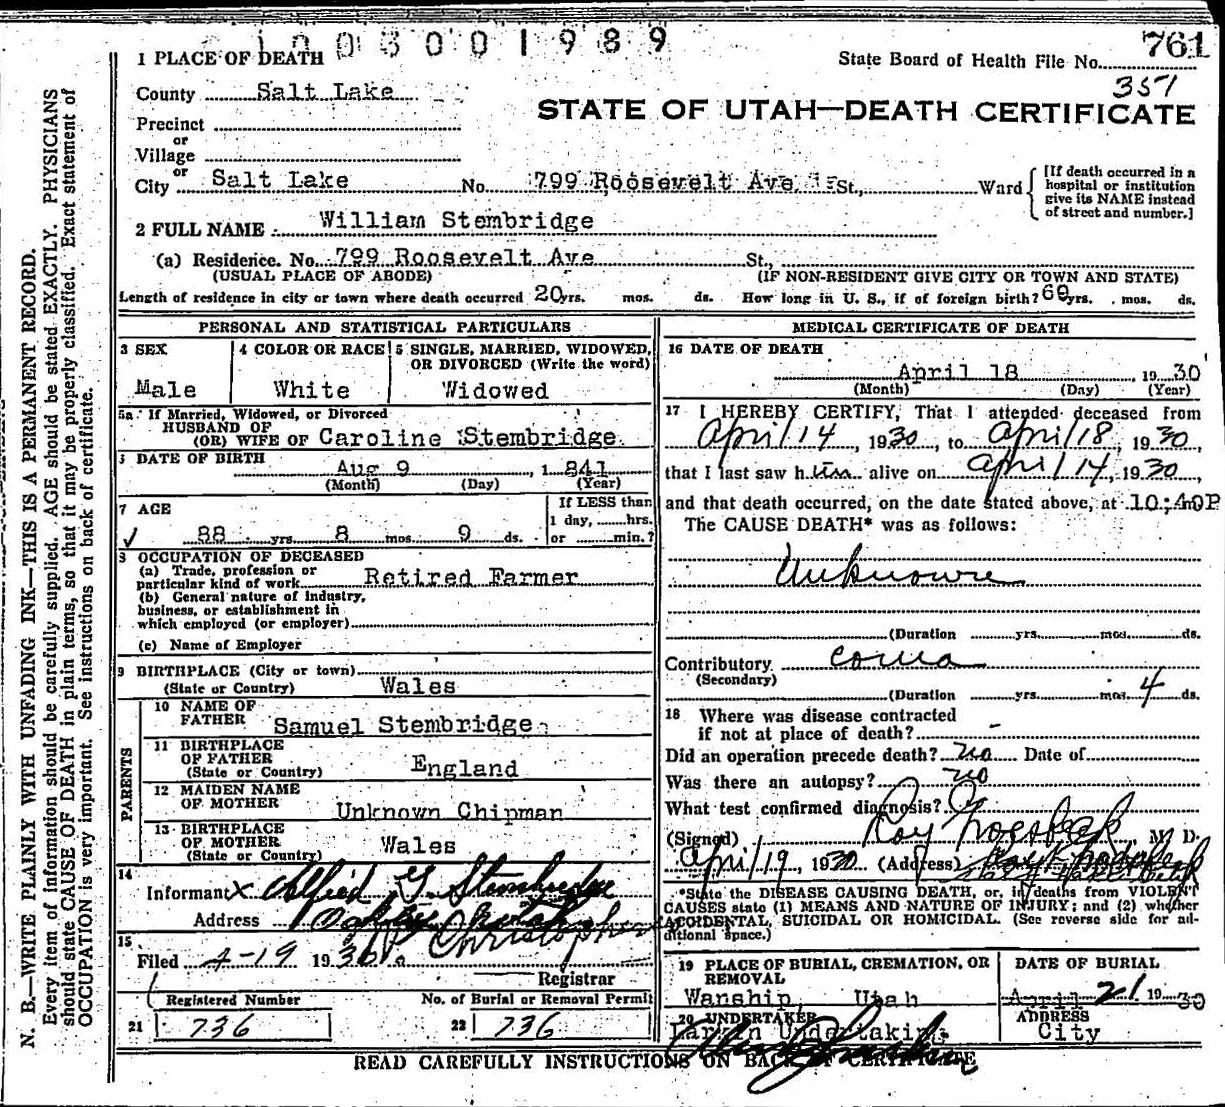 1003001989
761
1 PLACE OF DEATH
State Board of Health File No.
351
County Salt Lake
STATE OF UTAH—DEATH CERTIFICATE
Precinct
or
Village
or
City Salt Lake No. 799 Roosevelt Ave St., Ward
[If death occurred in a
hospital or institution
give its NAME instead
of street and number.]
2 FULL NAME William Stembridge
(a) Residence. No. 799 Roosevelt Ave St.,
(USUAL PLACE OF ABODE) (IF NON-RESIDENT GIVE CITY OR TOWN AND STATE)
Length of residence in city or town where death occurred 20 yrs. mos. ds. How long in U. S., if of foreign birth? 60 yrs. mos. ds.
PERSONAL AND STATISTICAL PARTICULARS
3 SEX
Male
4 COLOR OR RACE
White
5 SINGLE, MARRIED, WIDOWED,
OR DIVORCED (Write the word)
Widowed
5a If Married, Widowed, or Divorced
HUSBAND OF
(OR) WIFE OF Caroline Stembridge
DATE OF BIRTH
Aug 9 , 1 841
(Month) (Day) (Year)
7 AGE
88 yrs. 8 mos. 9 ds.
If LESS than
1 day, hrs.
or min.?
8 OCCUPATION OF DECEASED
(a) Trade, profession or
particular kind of work Retired Farmer
(b) General nature of industry,
business, or establishment in
which employed (or employer)
(c) Name of Employer
9 BIRTHPLACE (City or town)
(State or Country) Wales
PARENTS
10 NAME OF
FATHER Samuel Stembridge
11 BIRTHPLACE
OF FATHER
(State or Country) England
12 MAIDEN NAME
OF MOTHER Unknown Chipman
13 BIRTHPLACE
OF MOTHER
(State or Country) Wales
14
Informant x Alfred G. Stembridge
Address Oakley Utah
15
Filed 4-19 1930 Christopherson
Registrar
Registered Number
21 736
No. of Burial or Removal Permit
22 736
MEDICAL CERTIFICATE OF DEATH
16 DATE OF DEATH
April 18 , 19 30
(Month) (Day) (Year)
17 I HEREBY CERTIFY, That I attended deceased from
April 14 , 1930, to April 18, 1930,
that I last saw him alive on April 14, 1930,
and that death occurred, on the date stated above, at 10:40P m
The CAUSE DEATH* was as follows:
Unknown
(Duration yrs. mos. ds.
Contributory coma
(Secondary)
(Duration yrs. mos. 4 ds.
18 Where was disease contracted
if not at place of death? -
Did an operation precede death? no Date of
Was there an autopsy? no
What test confirmed diagnosis?
(Signed) Roy M. D.
April 19, 1930 (Address)
*State the DISEASE CAUSING DEATH, or, in deaths from VIOLENT
CAUSES state (1) MEANS AND NATURE OF INJURY; and (2) whether
ACCIDENTAL, SUICIDAL OR HOMICIDAL. (See reverse side for ad-
ditional space.)
19 PLACE OF BURIAL, CREMATION, OR
REMOVAL
Wanship, Utah
DATE OF BURIAL
April 21 19 30
20 UNDERTAKER
Larkin Undertaking
ADDRESS
City
READ CAREFULLY INSTRUCTIONS ON BACK OF CERTIFICATE
N. B.—WRITE PLAINLY WITH UNFADING INK—THIS IS A PERMANENT RECORD.
Every item of information should be carefully supplied. AGE should be stated EXACTLY. PHYSICIANS
should state CAUSE OF DEATH in plain terms, so that it may be properly classified. Exact statement of
OCCUPATION is very important. See instructions on back of certificate.